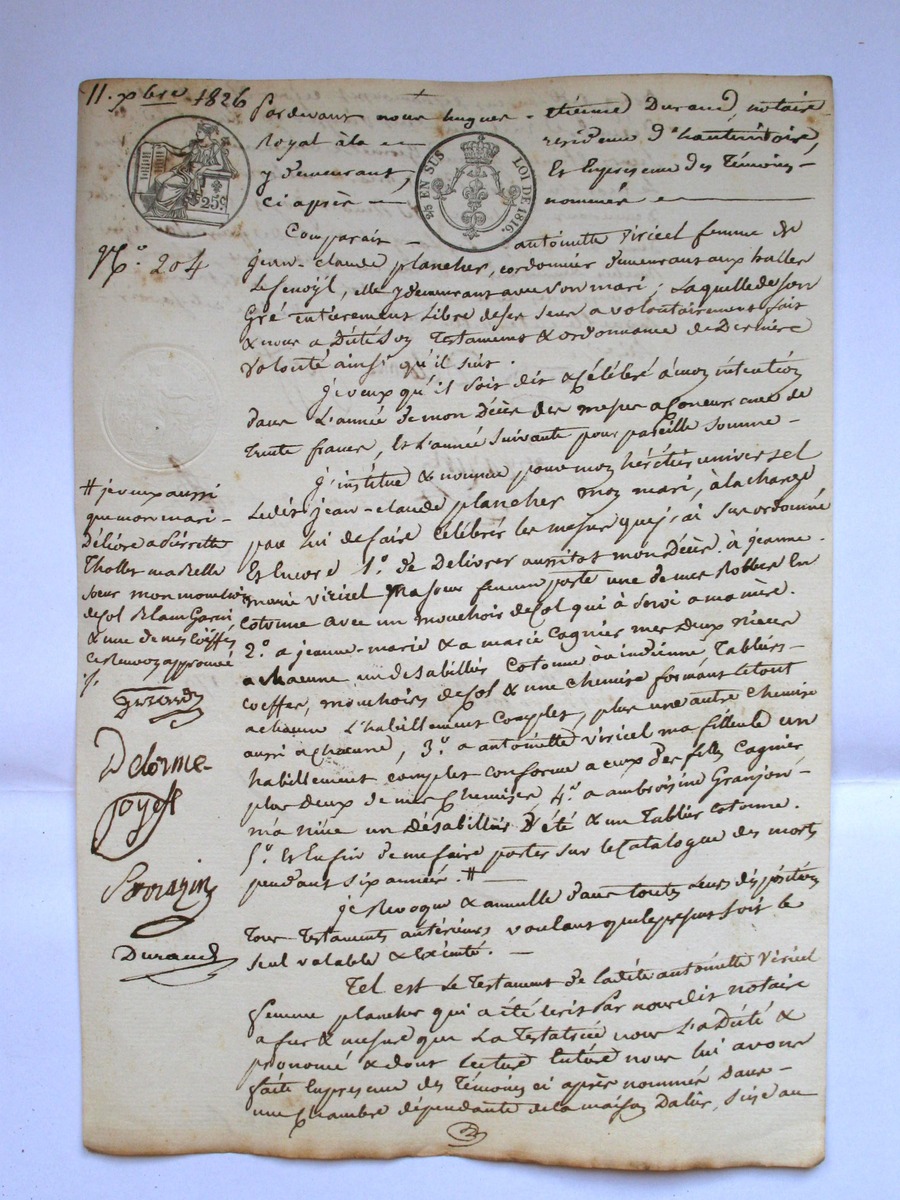 11. xbre 1826
Pardevant nous hugues - étienne Durand, notaire
royal à la residence d'
y demeurant, Et En presence des Témoins -
ci après nommés
25c.
25c EN SUS
LOI DE 1816.
N.° 204
Comparait antoinette viricel femme de
jean-claude plancher, cordonnier demeurant aux halles
elle y demeurant avec son mari; Laquelle de son
Gré entierement Libre de ses sens a volontairement fait
& nous a Dicté son Testament & ordonnance de Derniere
volonté ainsi qu'il suit.
je veux qu'il soit dit & Célébré à mon intention
dans L'année de mon Décès des messes a Concurrence de
Trente francs, Et L'année suivante pour pareille somme -
j'institue & nomme pour mon héritier universel
Ledit jean-claude plancher mon mari, à la charge
par lui de faire Célébrer les messes que j'ai sus ordonné
Et Encore 1.° de Delivrer aussitot mon Décès à jeanne
marie viricel Ma soeur une de mes Robbes En
Cotonne avec un mouchoir de Col qui à servi a ma mère.
2.° a jeanne-marie & a marie Cagnier mes deux nieces
a chacune un desabillier Cotonne ou indienne Tabliers -
Coeffes, mouchoirs de Col & une Chemise formant le tout
a chacune L'habillement Complet, plus une autre Chemise
aussi a chacune, 3.° a antoinette viricel ma filleule un
habillement complet conforme a ceux des filles Cagnier
plus Deux de mes Chemises 4.° a ambroisine Granjon -
ma nièce un désabillier d'été & un Tablier cotonne.
5.° Et Enfin de me faire porter sur le Catalogue des morts
pendant six années. #
je Revoque & annulle dans toutes Leurs dispositions
Tous Testaments antérieurs voulant que le present soit le
seul valable & Exécuté. -
Tel est Le Testament de Ladite antoinette viricel
femme plancher qui a été écrit par nous dit notaire
a fur & mesure que La Testatrice nous L'a Dicté &
prononcé & dont Lecture Entière nous lui avons
faite En presence des Témoins ci après nommés Dans -
une Chambre dépendante de la maison sise au
# je veux aussi
que mon mari -
Délivre a Pierrette
Thollet ma Belle
soeur mon mouchoir
de Col Blanc Garni
& une de mes Coëffes,
Ce Renvoy approuvé
Delorme
Joyet
Durand